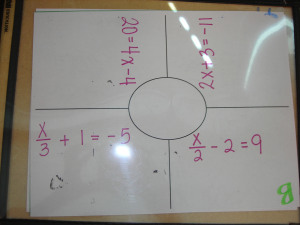 20=4x-4
2x+3=-11
x/3 + 1 = -5
x/2 - 2 = 9